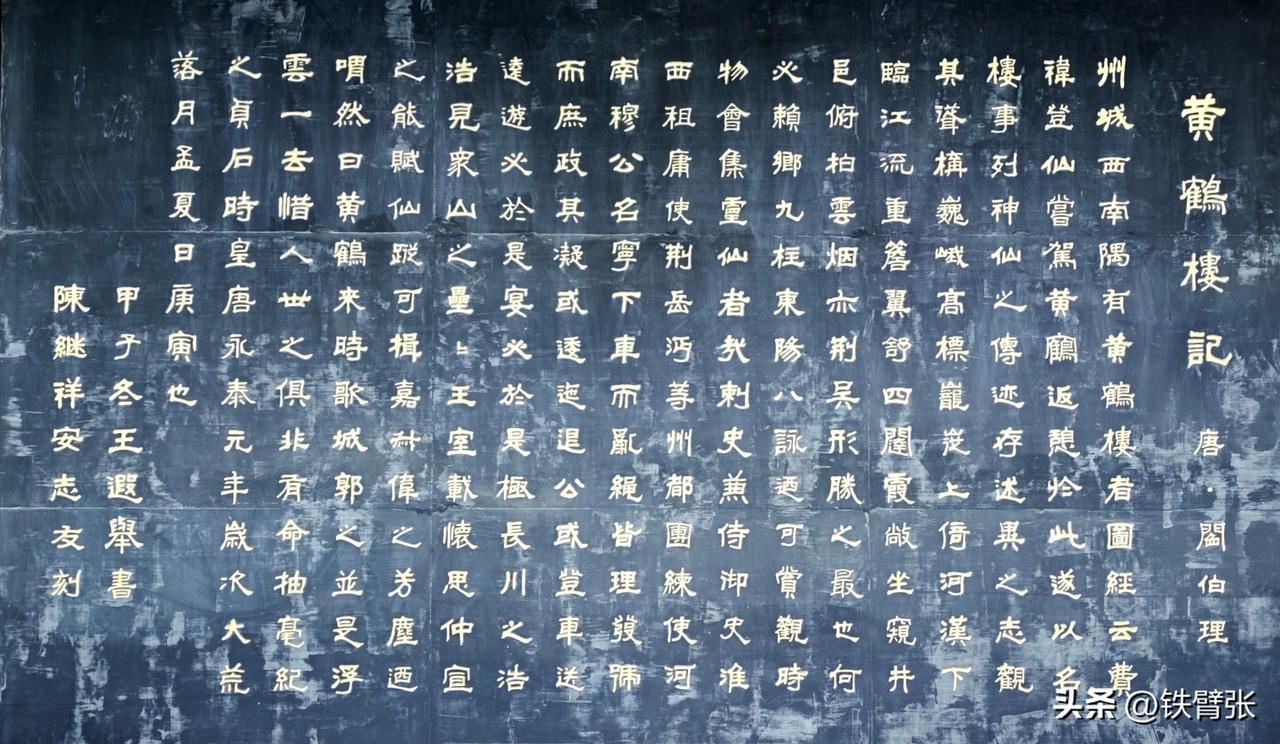 黄鶴樓記 唐·閻伯理
州城西南隅有黄鶴樓者圖經云費
禕登仙嘗駕黄鶴返憩於此遂以名
樓事列神仙之傳迹存述異之志觀
其聳構巍峨高標巃嵸上倚河漢下
臨江流重簷翼舒四闥霞敞坐窺井
邑俯拍雲烟亦荆吴形勝之最也何
必賴鄉九柱東陽八詠迺可賞觀時
物會集靈仙者哉刺史兼侍御史淮
西租庸使荆岳沔等州都團練使河
南穆公名寧下車而亂繩皆理發號
而庶政其凝或逶迤退公或登車送
遠遊必於是宴必於是極長川之浩
浩見衆山之壘〻王室載懷思仲宣
之能賦仙蹤可揖嘉叔偉之芳塵迺
喟然曰黄鶴來時歌城郭之並是浮
雲一去惜人世之俱非有命抽毫紀
之貞石時皇唐永泰元年歲次大荒
落月孟夏日庚寅也
甲子冬王遐舉書
陳継祥安志友刻
头条 @铁臂张